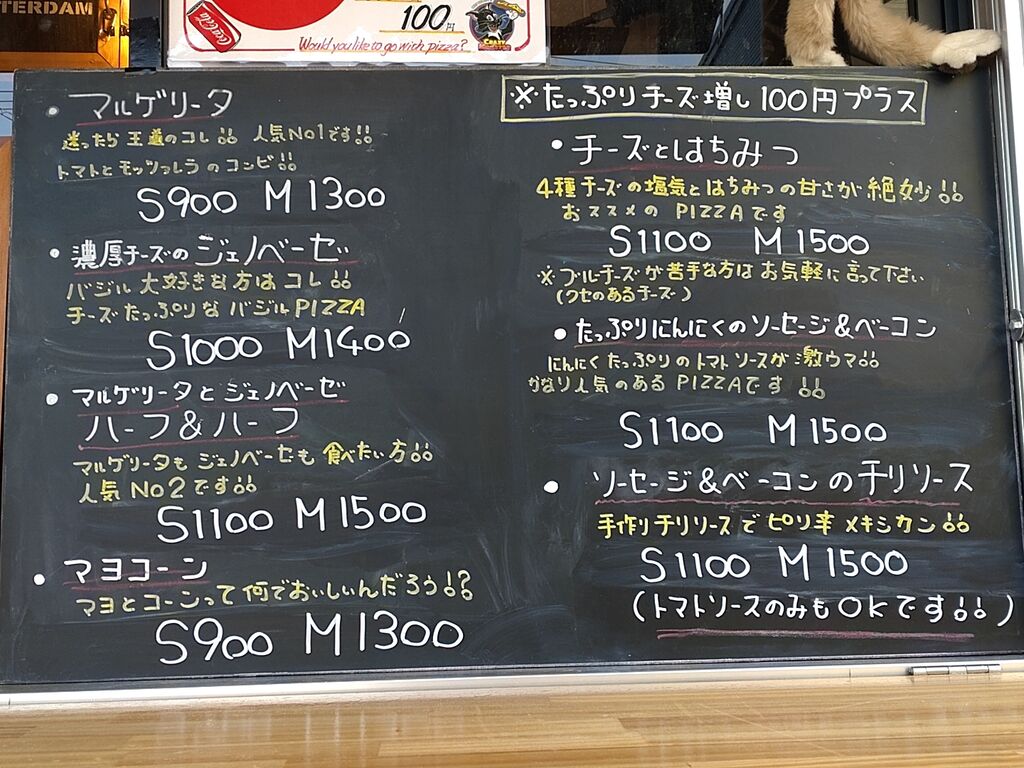 TERDAM
Coca-Cola
100円
Would you like to go with pizza?
CRAZY
・マルゲリータ
迷ったら王道のコレ!! 人気No1です!!
トマトとモッツァレラのコンビ!!
S900 M1300
・濃厚チーズのジェノベーゼ
バジル大好きな方はコレ!!
チーズたっぷりなバジルPIZZA
S1000 M1400
・マルゲリータとジェノベーゼ
ハーフ&ハーフ
マルゲリータもジェノベーゼも食べたい方!!
人気No2です!!
S1100 M1500
・マヨコーン
マヨとコーンって何でおいしいんだろう!?
S900 M1300
※たっぷりチーズ増し100円プラス
・チーズとはちみつ
4種チーズの塩気とはちみつの甘さが絶妙!!
おススメのPIZZAです
S1100 M1500
※ブルーチーズが苦手な方はお気軽に言って下さい
(クセのあるチーズ)
・たっぷりにんにくのソーセージ&ベーコン
にんにくたっぷりのトマトソースが激ウマ!!
かなり人気のあるPIZZAです!!
S1100 M1500
・ソーセージ&ベーコンのチリソース
手作りチリソースでピリ辛メキシカン!!
S1100 M1500
(トマトソースのみもOKです!!)